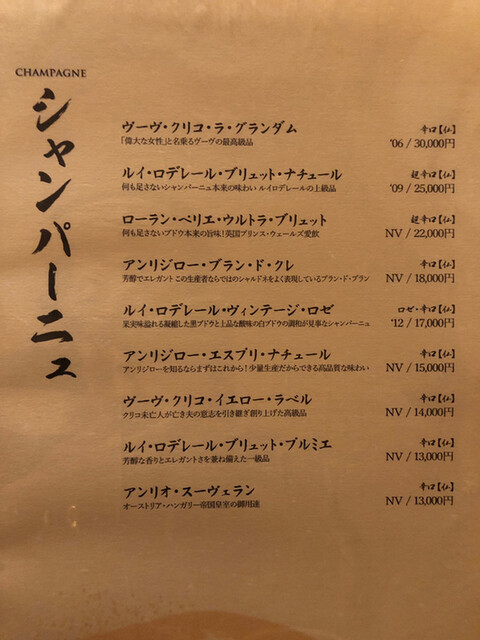 CHAMPAGNE
シャンパーニュ
ヴーヴ・クリコ・ラ・グランダム 辛口【仏】
「偉大な女性」と名乗るヴーヴの最高級品 '06 / 30,000円
ルイ・ロデレール・ブリュット・ナチュール 超辛口【仏】
何も足さないシャンパーニュ本来の味わい ルイロデレールの上級品 '09 / 25,000円
ローラン・ペリエ・ウルトラ・ブリュット 超辛口【仏】
何も足さないブドウ本来の旨味!英国プリンス・ウェールズ愛飲 NV / 22,000円
アンリジロー・ブラン・ド・クレ 辛口【仏】
芳醇でエレガント この生産者ならではのシャルドネをよく表現しているブラン・ド・ブラン NV / 18,000円
ルイ・ロデレール・ヴィンテージ・ロゼ ロゼ・辛口【仏】
果実味溢れる凝縮した黒ブドウと上品な酸味の白ブドウの調和が見事なシャンパーニュ '12 / 17,000円
アンリジロー・エスプリ・ナチュール 辛口【仏】
アンリジローを知るならまずはこれから!少量生産だからできる高品質な味わい NV / 15,000円
ヴーヴ・クリコ・イエロー・ラベル 辛口【仏】
クリコ未亡人が亡き夫の意志を引き継ぎ創り上げた高級品 NV / 14,000円
ルイ・ロデレール・ブリュット・プルミエ 辛口【仏】
芳醇な香りとエレガントさを兼ね備えた一級品 NV / 13,000円
アンリオ・スーヴェラン 辛口【仏】
オーストリア・ハンガリー帝国皇室の御用達 NV / 13,000円